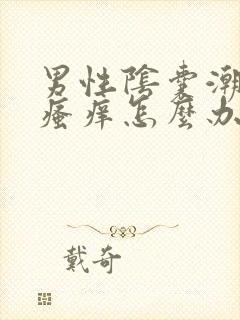 男性陰囊潮
瘙痒怎麼办
戴奇